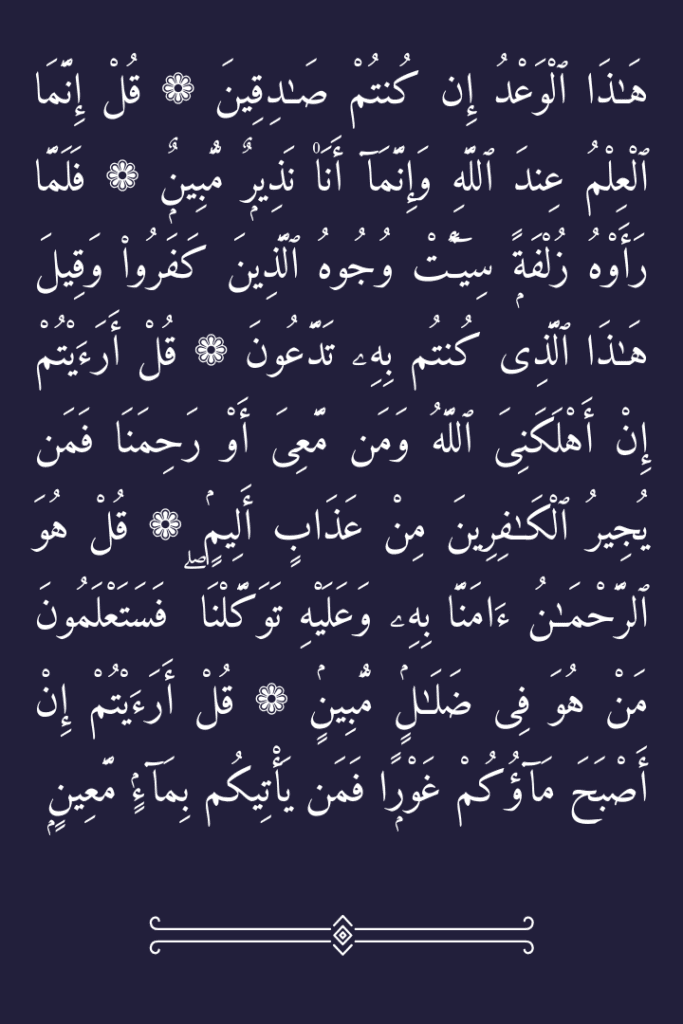 هَـٰذَا ٱلْوَعْدُ إِن كُنتُمْ صَـٰدِقِينَ ۝ قُلْ إِنَّمَا
ٱلْعِلْمُ عِندَ ٱللَّهِ وَإِنَّمَآ أَنَا۠ نَذِيرٌ مُّبِينٌ ۝ فَلَمَّا
رَأَوْهُ زُلْفَةً سِيٓـَٔتْ وُجُوهُ ٱلَّذِينَ كَفَرُوا۟ وَقِيلَ
هَـٰذَا ٱلَّذِى كُنتُم بِهِۦ تَدَّعُونَ ۝ قُلْ أَرَءَيْتُمْ
إِنْ أَهْلَكَنِىَ ٱللَّهُ وَمَن مَّعِىَ أَوْ رَحِمَنَا فَمَن
يُجِيرُ ٱلْكَـٰفِرِينَ مِنْ عَذَابٍ أَلِيمٍ ۝ قُلْ هُوَ
ٱلرَّحْمَـٰنُ ءَامَنَّا بِهِۦ وَعَلَيْهِ تَوَكَّلْنَا ۖ فَسَتَعْلَمُونَ
مَنْ هُوَ فِى ضَلَـٰلٍ مُّبِينٍ ۝ قُلْ أَرَءَيْتُمْ إِنْ
أَصْبَحَ مَآؤُكُمْ غَوْرًا فَمَن يَأْتِيكُم بِمَآءٍ مَّعِينٍ